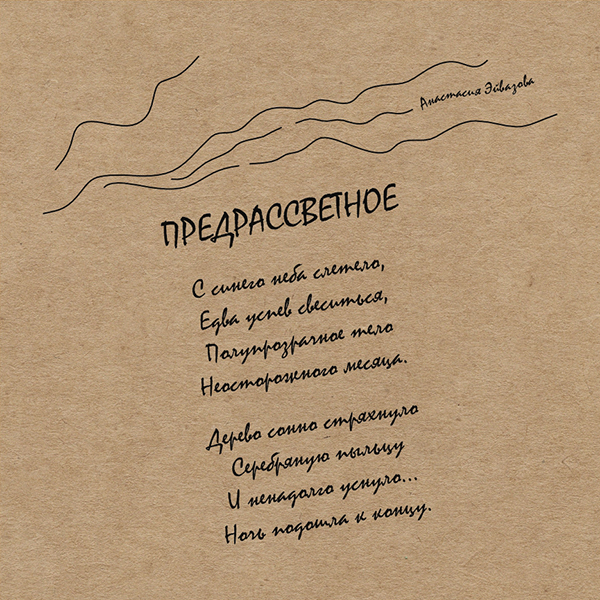 Анастасия Эйвазова
ПРЕДРАССВЕТНОЕ
С синего неба слетело,
Едва успев свеситься,
Полупрозрачное тело
Неосторожного месяца.
Дерево сонно стряхнуло
Серебряную пыльцу
И ненадолго уснуло...
Ночь подошла к концу.